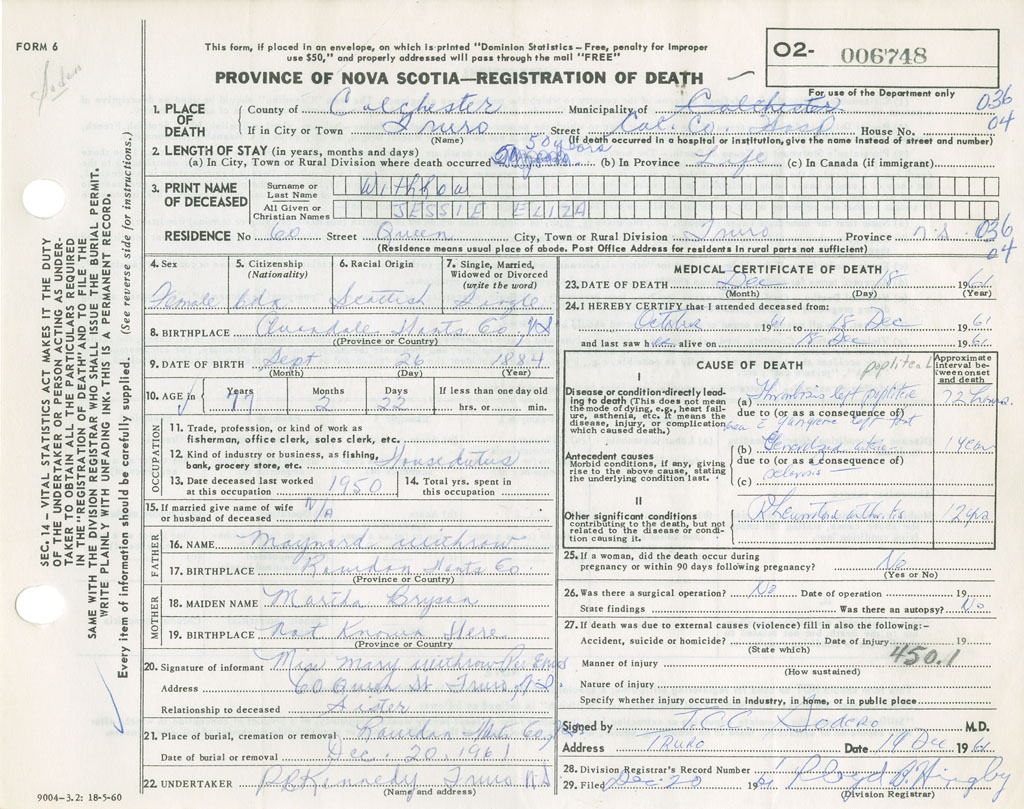 FORM 6
Soden
This form, if placed in an envelope, on which is printed "Dominion Statistics – Free, penalty for improper
use $50," and properly addressed will pass through the mail "FREE"
PROVINCE OF NOVA SCOTIA—REGISTRATION OF DEATH
O2- 006748
For use of the Department only
036
04
1. PLACE OF DEATH
County of Colchester Municipality of Colchester
If in City or Town Truro Street Col. Co. Hosp House No.
(Name) (If death occurred in a hospital or institution, give name instead of street and number)
2. LENGTH OF STAY (in years, months and days) 50 years
(a) In City, Town or Rural Division where death occurred (b) In Province Life (c) In Canada (if immigrant)
3. PRINT NAME OF DECEASED
Surname or Last Name Withrow
All Given or Christian Names JESSIE ELIZA
RESIDENCE No 60 Street Queen City, Town or Rural Division Truro Province N.S. 036
04
(Residence means usual place of abode. Post Office Address for residents in rural parts not sufficient)
4. Sex 5. Citizenship (Nationality) 6. Racial Origin 7. Single, Married, Widowed or Divorced (write the word)
Female Cdn Scottish Single
8. BIRTHPLACE Avondale Hants Co, NS
(Province or Country)
9. DATE OF BIRTH Sept 26 1884
(Month) (Day) (Year)
10. AGE in Years Months Days If less than one day old
77 2 22 hrs. or min.
OCCUPATION
11. Trade, profession, or kind of work as fisherman, office clerk, sales clerk, etc.
12. Kind of industry or business, as fishing, bank, grocery store, etc. Houseduties
13. Date deceased last worked at this occupation 1950 14. Total yrs. spent in this occupation
15. If married give name of wife or husband of deceased N/A
FATHER
16. NAME Maynard Withrow
17. BIRTHPLACE Rawdon Hants Co.
(Province or Country)
MOTHER
18. MAIDEN NAME Martha Bryson
19. BIRTHPLACE Not Known Here
(Province or Country)
20. Signature of informant Miss Mary Withrow Per
Address 60 Queen St Truro, N.S.
Relationship to deceased Sister
21. Place of burial, cremation or removal Rawdon Hants Co,
Date of burial or removal Dec. 20, 1961
22. UNDERTAKER Kennedy Truro N.S
(Name and address)
9004-3.2: 18-5-60
MEDICAL CERTIFICATE OF DEATH
23. DATE OF DEATH Dec 18 1961
(Month) (Day) (Year)
24. I HEREBY CERTIFY that I attended deceased from:
October 1961 to 18 Dec 1961
and last saw h alive on 18 Dec 1961
CAUSE OF DEATH popliteal
Approximate interval between onset and death
I
Disease or condition directly leading to death (This does not mean the mode of dying, e.g., heart failure, asthenia, etc. It means the disease, injury, or complication which caused death.)
(a) Thrombosis left popliteal 72 hours
due to (or as a consequence of)
gangrene left foot
Antecedent causes
Morbid conditions, if any, giving rise to the above cause, stating the underlying condition last.
(b) Generalized arterio 1 year
due to (or as a consequence of)
(c) sclerosis
II
Other significant conditions
contributing to the death, but not related to the disease or condition causing it.
Rheumatoid arthritis 12 yrs
25. If a woman, did the death occur during
pregnancy or within 90 days following pregnancy? No
(Yes or No)
26. Was there a surgical operation? No Date of operation 19
State findings Was there an autopsy? No
27. If death was due to external causes (violence) fill in also the following:-
Accident, suicide or homicide? Date of injury 19
(State which) 450.1
Manner of injury
(How sustained)
Nature of injury
Specify whether injury occurred in industry, in home, or in public place
Signed by F.C.C. Sodero M.D.
Address TRURO Date 19 Dec 1961
28. Division Registrar's Record Number
29. Filed Dec. 20 1961 Lloyd B Hingley
(Division Registrar)
SEC. 14 – VITAL STATISTICS ACT MAKES IT THE DUTY
OF THE UNDERTAKER OR PERSON ACTING AS UNDER-
TAKER TO OBTAIN ALL THE PARTICULARS REQUIRED
IN THE "REGISTRATION OF DEATH" AND TO FILE THE
SAME WITH THE DIVISION REGISTRAR WHO SHALL ISSUE THE BURIAL PERMIT.
WRITE PLAINLY WITH UNFADING INK. THIS IS A PERMANENT RECORD.
Every item of information should be carefully supplied. (See reverse side for instructions.)